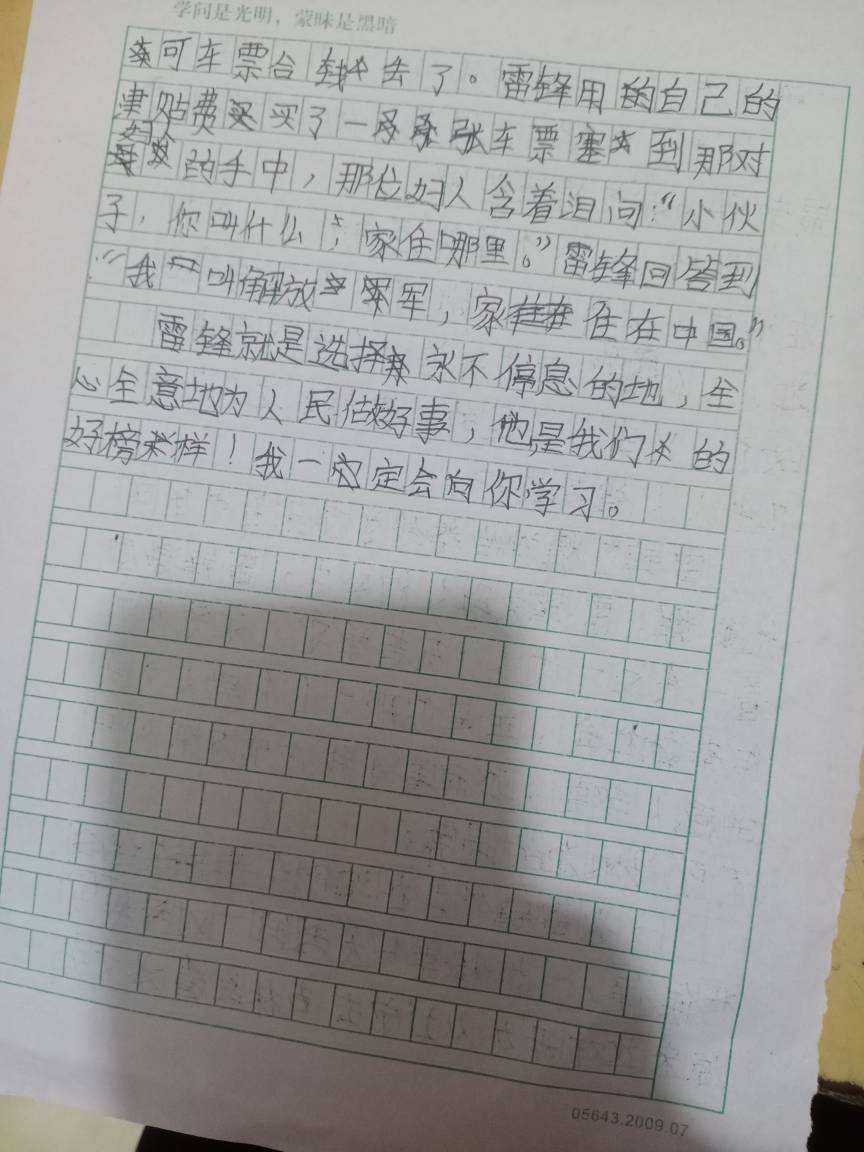 学问是光明，蒙昧是黑暗
可车票台钱去了。雷锋用的自己的
津贴费买了一张车票塞到那对
妇人
的手中，那位妇人含着泪问:“小伙
子，你叫什么，家住哪里。”雷锋回答到
“我叫解放军，家住在中国。”
雷锋就是选择永不停息的地，全
心全意地为人民做好事，他是我们的
好榜样！我一定会向你学习。
05643.2009.07